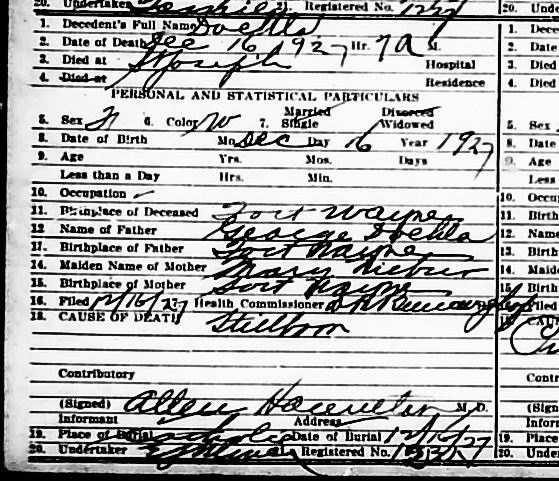 20. Undertaker 21. Registered No. 20. Under
1. Decedent's Full Name Doehla 1. Dece
2. Date of Death Dec 16 1927 Hr. 7 A M. 2. Date
3. Died at St Joseph Hospital 3. Died
4. Died at Residence 4. Died
PERSONAL AND STATISTICAL PARTICULARS
5. Sex 6. Color W 7. Married Single Divorced Widowed 5. Sex
8. Date of Birth Mo. Dec Day 16 Year 1927 8. Date
9. Age Yrs. Mos. Days 9. Age
Less than a Day Hrs. Min. Less
10. Occupation 10. Occup
11. Birthplace of Deceased Fort Wayne 11. Birth
12 Name of Father George Doehla 12. Name
Birthplace of Father Fort Wayne Birth
14. Maiden Name of Mother Mary 14. Maid
15. Birthplace of Mother Fort Wayne 15. Birth
16. Filed 12/16/27 Health Commissioner Filed
18. CAUSE OF DEATH Stillborn
Contributory Contr
(Signed) Allen M. D. (Sign
Informant Address Inform
19. Place of Burial Catholic Date of Burial 12/16/27 19. Place
20. Undertaker Registered No. 20. Unde